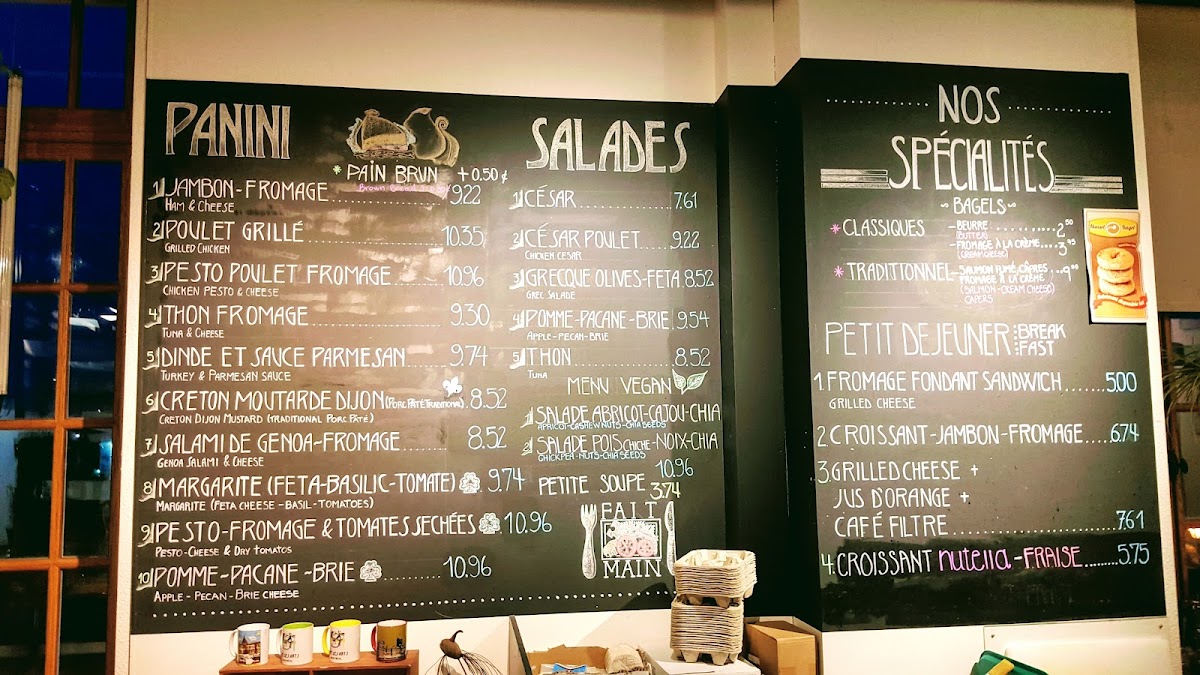 PANINI
* PAIN BRUN + 0.50¢
1 JAMBON-FROMAGE 9.22
HAM & CHEESE
2 POULET GRILLÉ 10.35
GRILLED CHICKEN
3 PESTO POULET FROMAGE 10.96
CHICKEN PESTO & CHEESE
4 THON FROMAGE 9.30
TUNA & CHEESE
5 DINDE ET SAUCE PARMESAN 9.74
TURKEY & PARMESAN SAUCE
6 CRETON MOUTARDE DIJON (PORC PÂTÉ TRADITIONAL) 8.52
CRETON DIJON MUSTARD (TRADITIONAL PORC PÂTÉ)
7 SALAMI DE GENOA-FROMAGE 8.52
GENOA SALAMI & CHEESE
8 MARGARITE (FETA-BASILIC-TOMATE) 9.74
MARGARITE (FETA CHEESE-BASIL-TOMATOES)
9 PESTO-FROMAGE & TOMATES SECHÉES 10.96
PESTO-CHEESE & DRY TOMATOS
10 POMME-PACANE-BRIE 10.96
APPLE-PECAN-BRIE CHEESE
SALADES
1 CÉSAR 7.61
2 CÉSAR POULET 9.22
CHICKEN CESAR
3 GRECQUE OLIVES-FETA 8.52
GREC SALADE
4 POMME-PACANE-BRIE 9.54
APPLE-PECAN-BRIE
5 THON 8.52
TUNA
MENU VEGAN
1 SALADE ABRICOT-CAJOU-CHIA
APRICOT-CASHEW NUTS-CHIA SEEDS
2 SALADE POIS CHICHE-NOIX-CHIA
CHICKPEA-NUTS-CHIA SEEDS
10.96
PETITE SOUPE 3.74
FAIT
MAIN
NOS
SPÉCIALITÉS
~ BAGELS ~
* CLASSIQUES - BEURRE 2.50
(BUTTER)
- FROMAGE À LA CRÈME 3.95
(CREAM CHEESE)
* TRADITIONNEL - SAUMON FUMÉ, CÂPRES,
FROMAGE À LA CRÈME
(SALMON-CREAM CHEESE)
CAPERS
PETIT DEJEUNER BREAK
FAST
1. FROMAGE FONDANT SANDWICH 5.00
GRILLED CHEESE
2. CROISSANT-JAMBON-FROMAGE 6.74
3. GRILLED CHEESE +
JUS D'ORANGE +
CAFÉ FILTRE 7.61
4. CROISSANT nutella-FRAISE 5.75